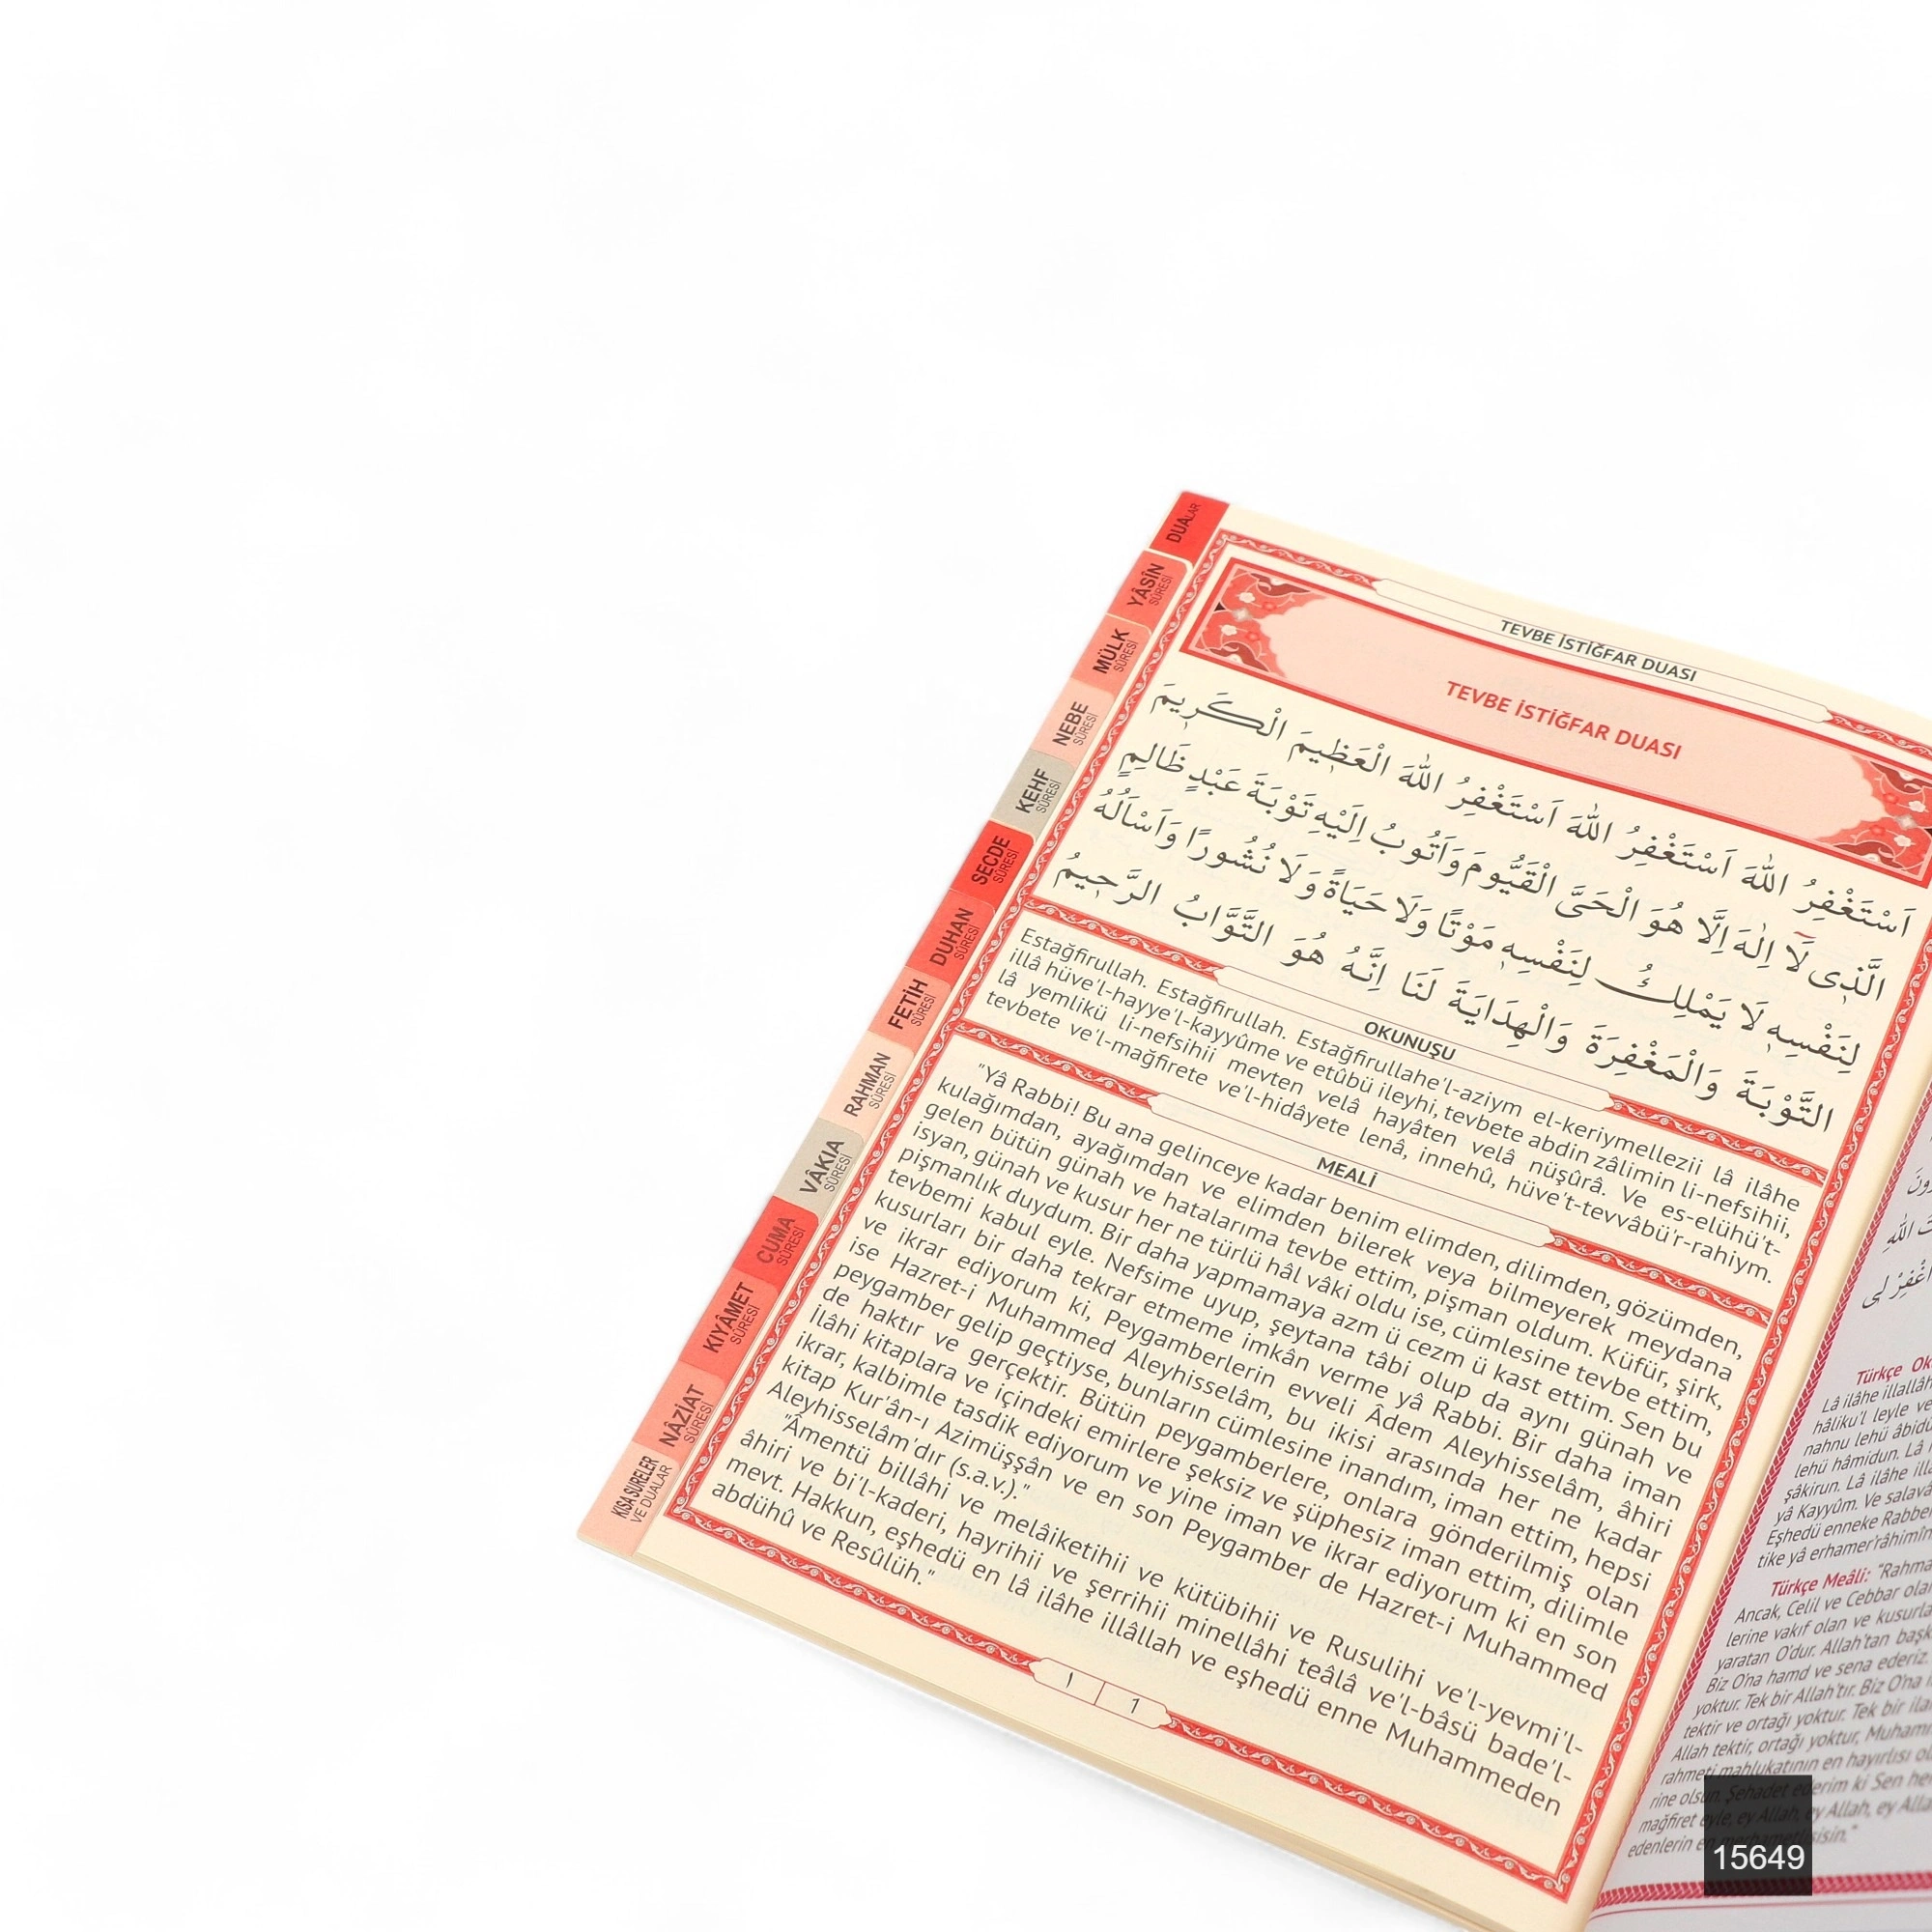 DUALAR
YÂSÎN SÛRESİ
MÜLK SÛRESİ
NEBE SÛRESİ
KEHF SÛRESİ
SECDE SÛRESİ
DUHAN SÛRESİ
FETİH SÛRESİ
RAHMAN SÛRESİ
VÂKIA SÛRESİ
CUMA SÛRESİ
KIYÂMET SÛRESİ
NÂZİAT SÛRESİ
KISA SURELER
VE DUALAR
TEVBE İSTİĞFAR DUASI
TEVBE İSTİĞFAR DUASI
اَسْتَغْفِرُ اللّٰهَ اَسْتَغْفِرُ اللّٰهَ اَسْتَغْفِرُ اللّٰهَ الْعَظ۪يمَ الْكَر۪يمَ
الَّذ۪ى لَٓا اِلٰهَ اِلَّا هُوَ الْحَىَّ الْقَيُّومَ وَاَتُوبُ اِلَيْهِ تَوْبَةَ عَبْدٍ ظَالِمٍ
لِنَفْسِه۪ لَا يَمْلِكُ لِنَفْسِه۪ مَوْتًا وَلَا حَيَاةً وَلَا نُشُورًا وَاَسْاَلُهُ
التَّوْبَةَ وَالْمَغْفِرَةَ وَالْهِدَايَةَ لَنَا اِنَّهُ هُوَ التَّوَّابُ الرَّح۪يمُ
OKUNUŞU
Estağfirullah. Estağfirullah. Estağfirullahe'l-aziym el-keriymellezii lâ ilâhe
illâ hüve'l-hayye'l-kayyûme ve etûbü ileyhi, tevbete abdin zâlimin li-nefsihii,
lâ yemlikü li-nefsihii mevten velâ hayâten velâ nüşûrâ. Ve es-elühü't-
tevbete ve'l-mağfirete ve'l-hidâyete lenâ, innehû, hüve't-tevvâbü'r-rahiym.
MEALİ
"Yâ Rabbi! Bu ana gelinceye kadar benim elimden, dilimden, gözümden,
kulağımdan, ayağımdan ve elimden bilerek veya bilmeyerek meydana
gelen bütün günah ve hatalarıma tevbe ettim, pişman oldum. Küfür, şirk,
isyan, günah ve kusur her ne türlü hâl vâki oldu ise, cümlesine tevbe ettim,
pişmanlık duydum. Bir daha yapmamaya azm ü cezm ü kast ettim. Sen bu
tevbemi kabul eyle. Nefsime uyup, şeytana tâbi olup da aynı günah ve
kusurları bir daha tekrar etmeme imkân verme yâ Rabbi. Bir daha iman
ve ikrar ediyorum ki, Peygamberlerin evveli Âdem Aleyhisselâm, âhiri
ise Hazret-i Muhammed Aleyhisselâm, bu ikisi arasında her ne kadar
peygamber gelip geçtiyse, bunların cümlesine inandım, iman ettim, hepsi
de haktır ve gerçektir. Bütün peygamberlere, onlara gönderilmiş olan
İlâhi kitaplara ve içindeki emirlere şeksiz ve şüphesiz iman ettim, dilimle
ikrar, kalbimle tasdik ediyorum ve yine iman ve ikrar ediyorum ki en son
kitap Kur'ân-ı Azimüşşân ve en son Peygamber de Hazret-i Muhammed
Aleyhisselâm'dır (s.a.v.)."
"Âmentü billâhi ve melâiketihii ve kütübihii ve Rusulihi ve'l-yevmi'l-
âhiri ve bi'l-kaderi, hayrihii ve şerrihii minellâhi teâlâ ve'l-bâsü bade'l-
mevt. Hakkun, eşhedü en lâ ilâhe illâllah ve eşhedü enne Muhammeden
abdühû ve Resûlüh."
١ 1
اللّٰهِ
اغْفِرْ لى
Türkçe
Lâ ilâhe illallâh
hâliku'l leyle ve
nahnu lehü
lehü hâmidun. Lâ
şâkirun. Lâ ilâhe
yâ Kayyûm. Ve
Eşhedü enneke
tike yâ
Türkçe Meâli:
Ancak, Celil ve Cebbar
lerine vakıf olan ve
yaratan O'dur. Allah'tan
Biz O'na hamd ve sena ederiz.
yoktur. Tek bir Allah'tır. Biz O'na
tektir ve ortağı yoktur. Tek bir
Allah tektir, ortağı yoktur,
rahmeti mahlukatının en hayırlısı
rine olsun. Şehadet ederim ki Sen
mağfiret eyle, ey Allah, ey Allah, ey
edenlerin en merhametlisisin."
15649